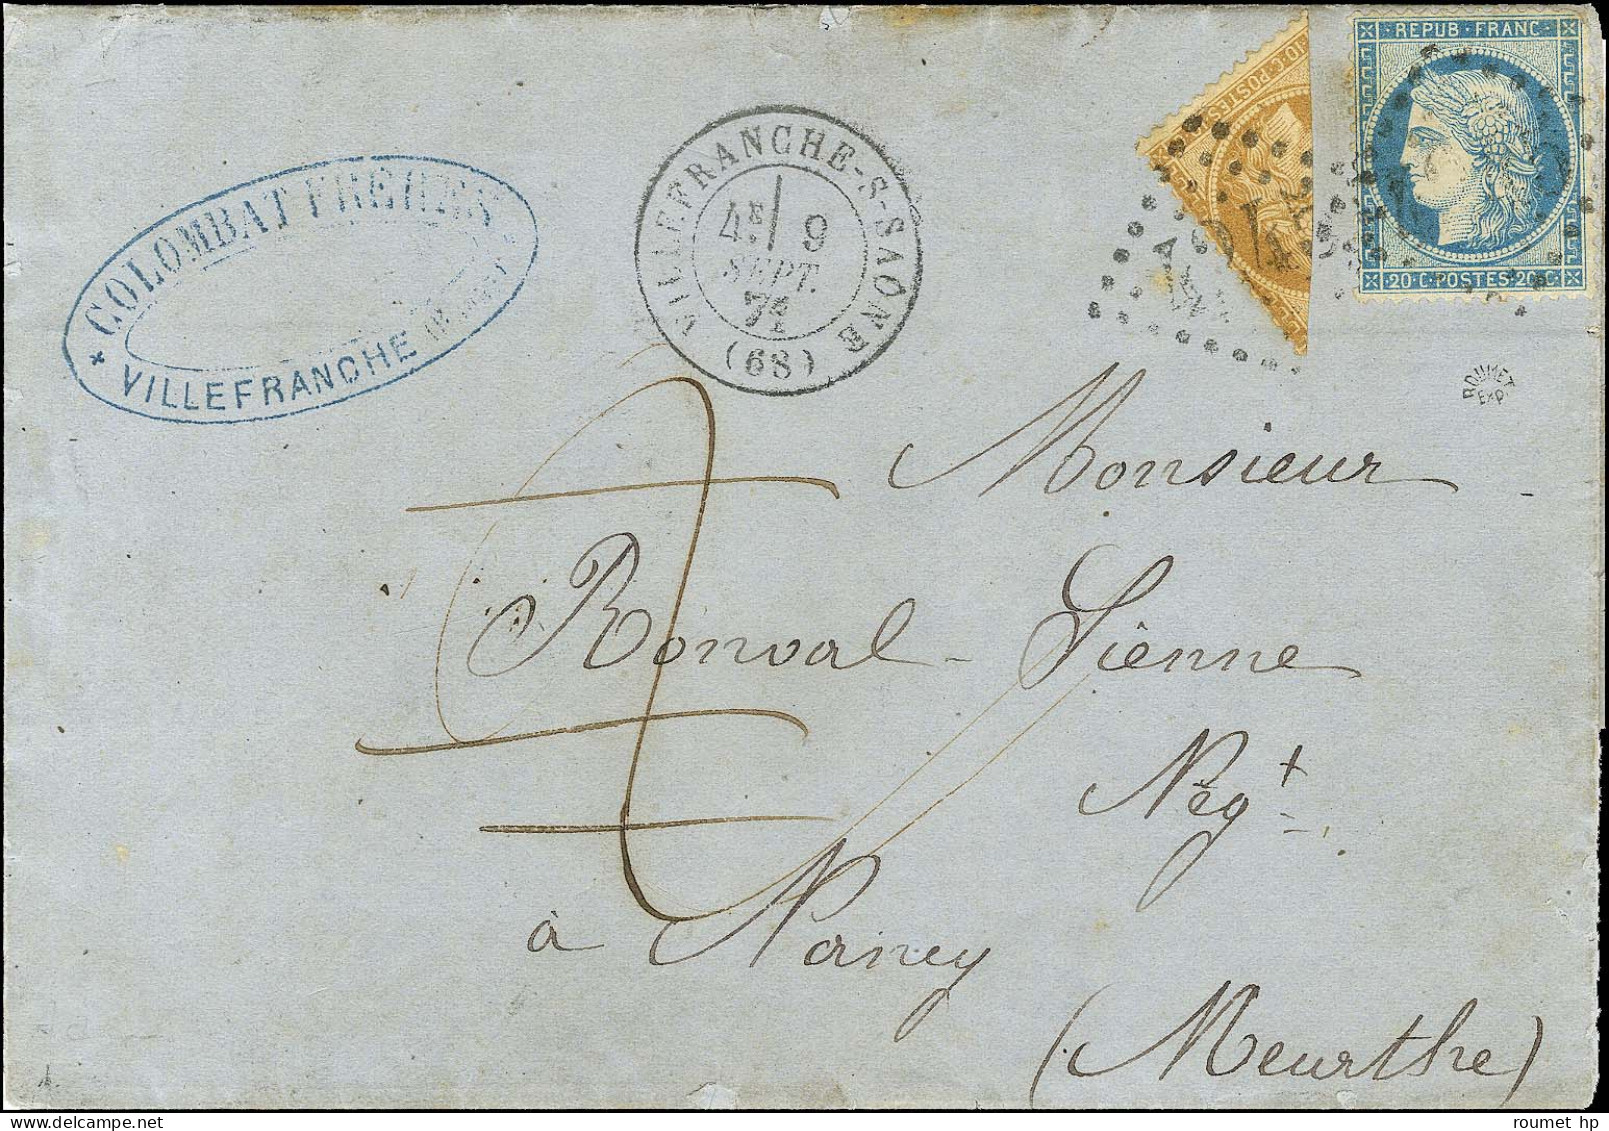 COLOMBAT FRERES
VILLEFRANCHE
VILLEFRANCHE-S-SAÔNE
4E 9
SEPT.
71
(68)
10·C·POSTES
REPUB·FRANC·
20·C·POSTES·20·C
ROUMET
Exp.
Monsieur
Ronval-Sienne
Négt
à Nancy
(Meurthe)
roumet hp